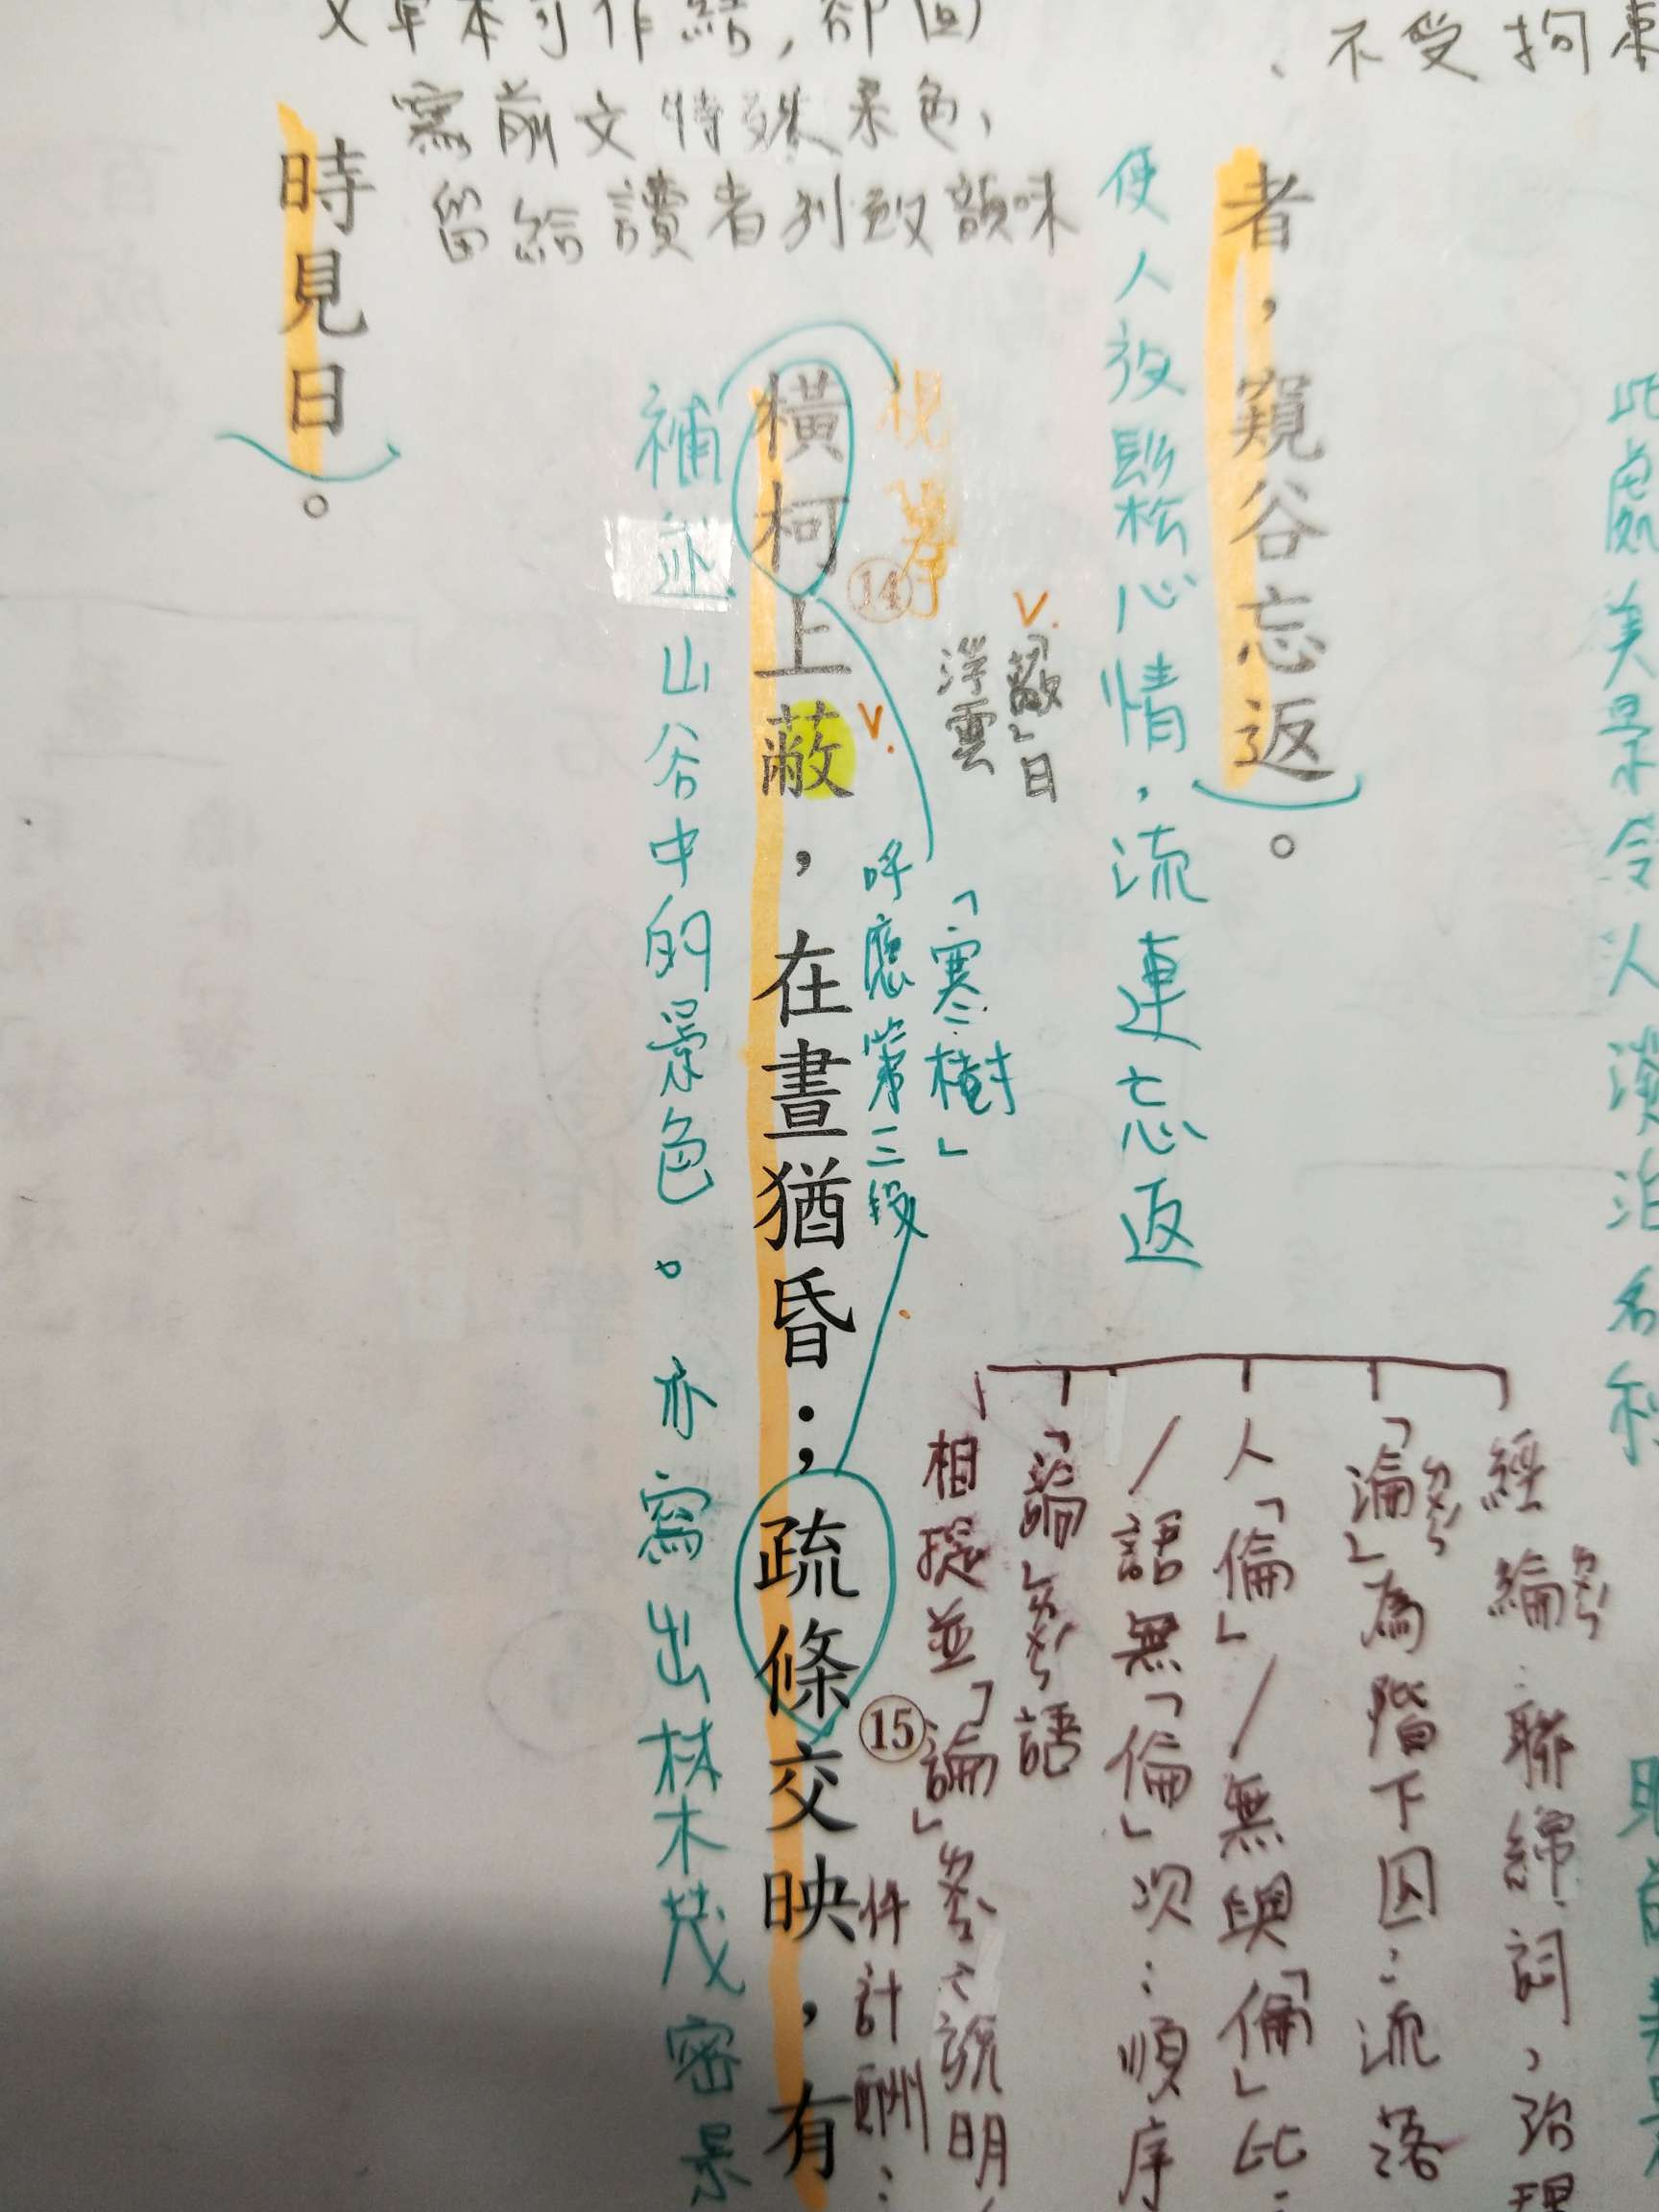 此處美景令人淡泊名利
不受拘束
者，窺谷忘返。
使人放鬆心情，流連忘返
經綸ㄌㄨㄣˊ：聯綿詞，治理
「淪ㄌㄨㄣˊ」為階下囚：流落
人「倫」／無與「倫」比：
／語無「倫」次：順序
「論」ㄌㄨㄣˊ語
相提並「論」ㄌㄨㄣˋ：說明
件計酬：
視覺
橫柯⑭上蔽，在晝猶昏；疏條⑮交映，有
「蔽」日
浮雲
「寒樹」
呼應第三段
補述山谷中的景色。亦寫出林木茂密景
作結，卻回
寫前文特殊景色，
留給讀者別致韻味
時見日。